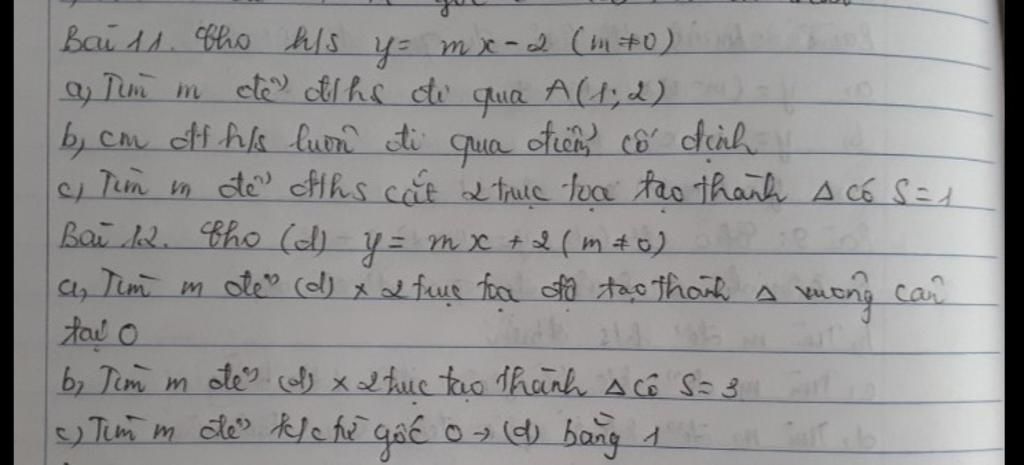 Bài 11. Cho h/s y = mx - 2 (m ≠ 0)
a, Tìm m để đths đi qua A(1; 2)
b, cm đt h/s luôn đi qua điểm cố định
c, Tìm m để đths cắt 2 trục tọa tạo thành Δ có S = 1
Bài 12. Cho (d) y = mx + 2 (m ≠ 0)
a, Tìm m để (d) x 2 trục tọa độ tạo thành Δ vuông cân
tại O
b, Tìm m để (d) x 2 trục tạo thành Δ có S = 3
c, Tìm m để k/c từ gốc O → (d) bằng 1